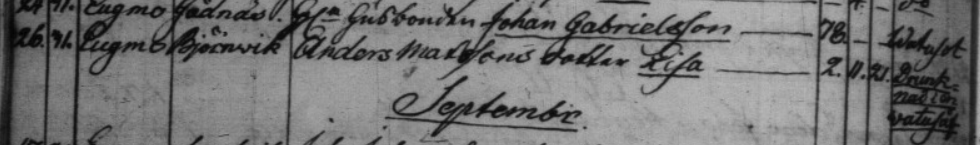 24. 31. Eugmo Gädnäs. G:la Husbonden Johan Gabrielsson — 78. — Watusot
26. 31. Eugmo Björnvik Anders Mattssons dotter Lisa — 2. 11. 21. Drunk-
nad i en
watusåg
Septembr.